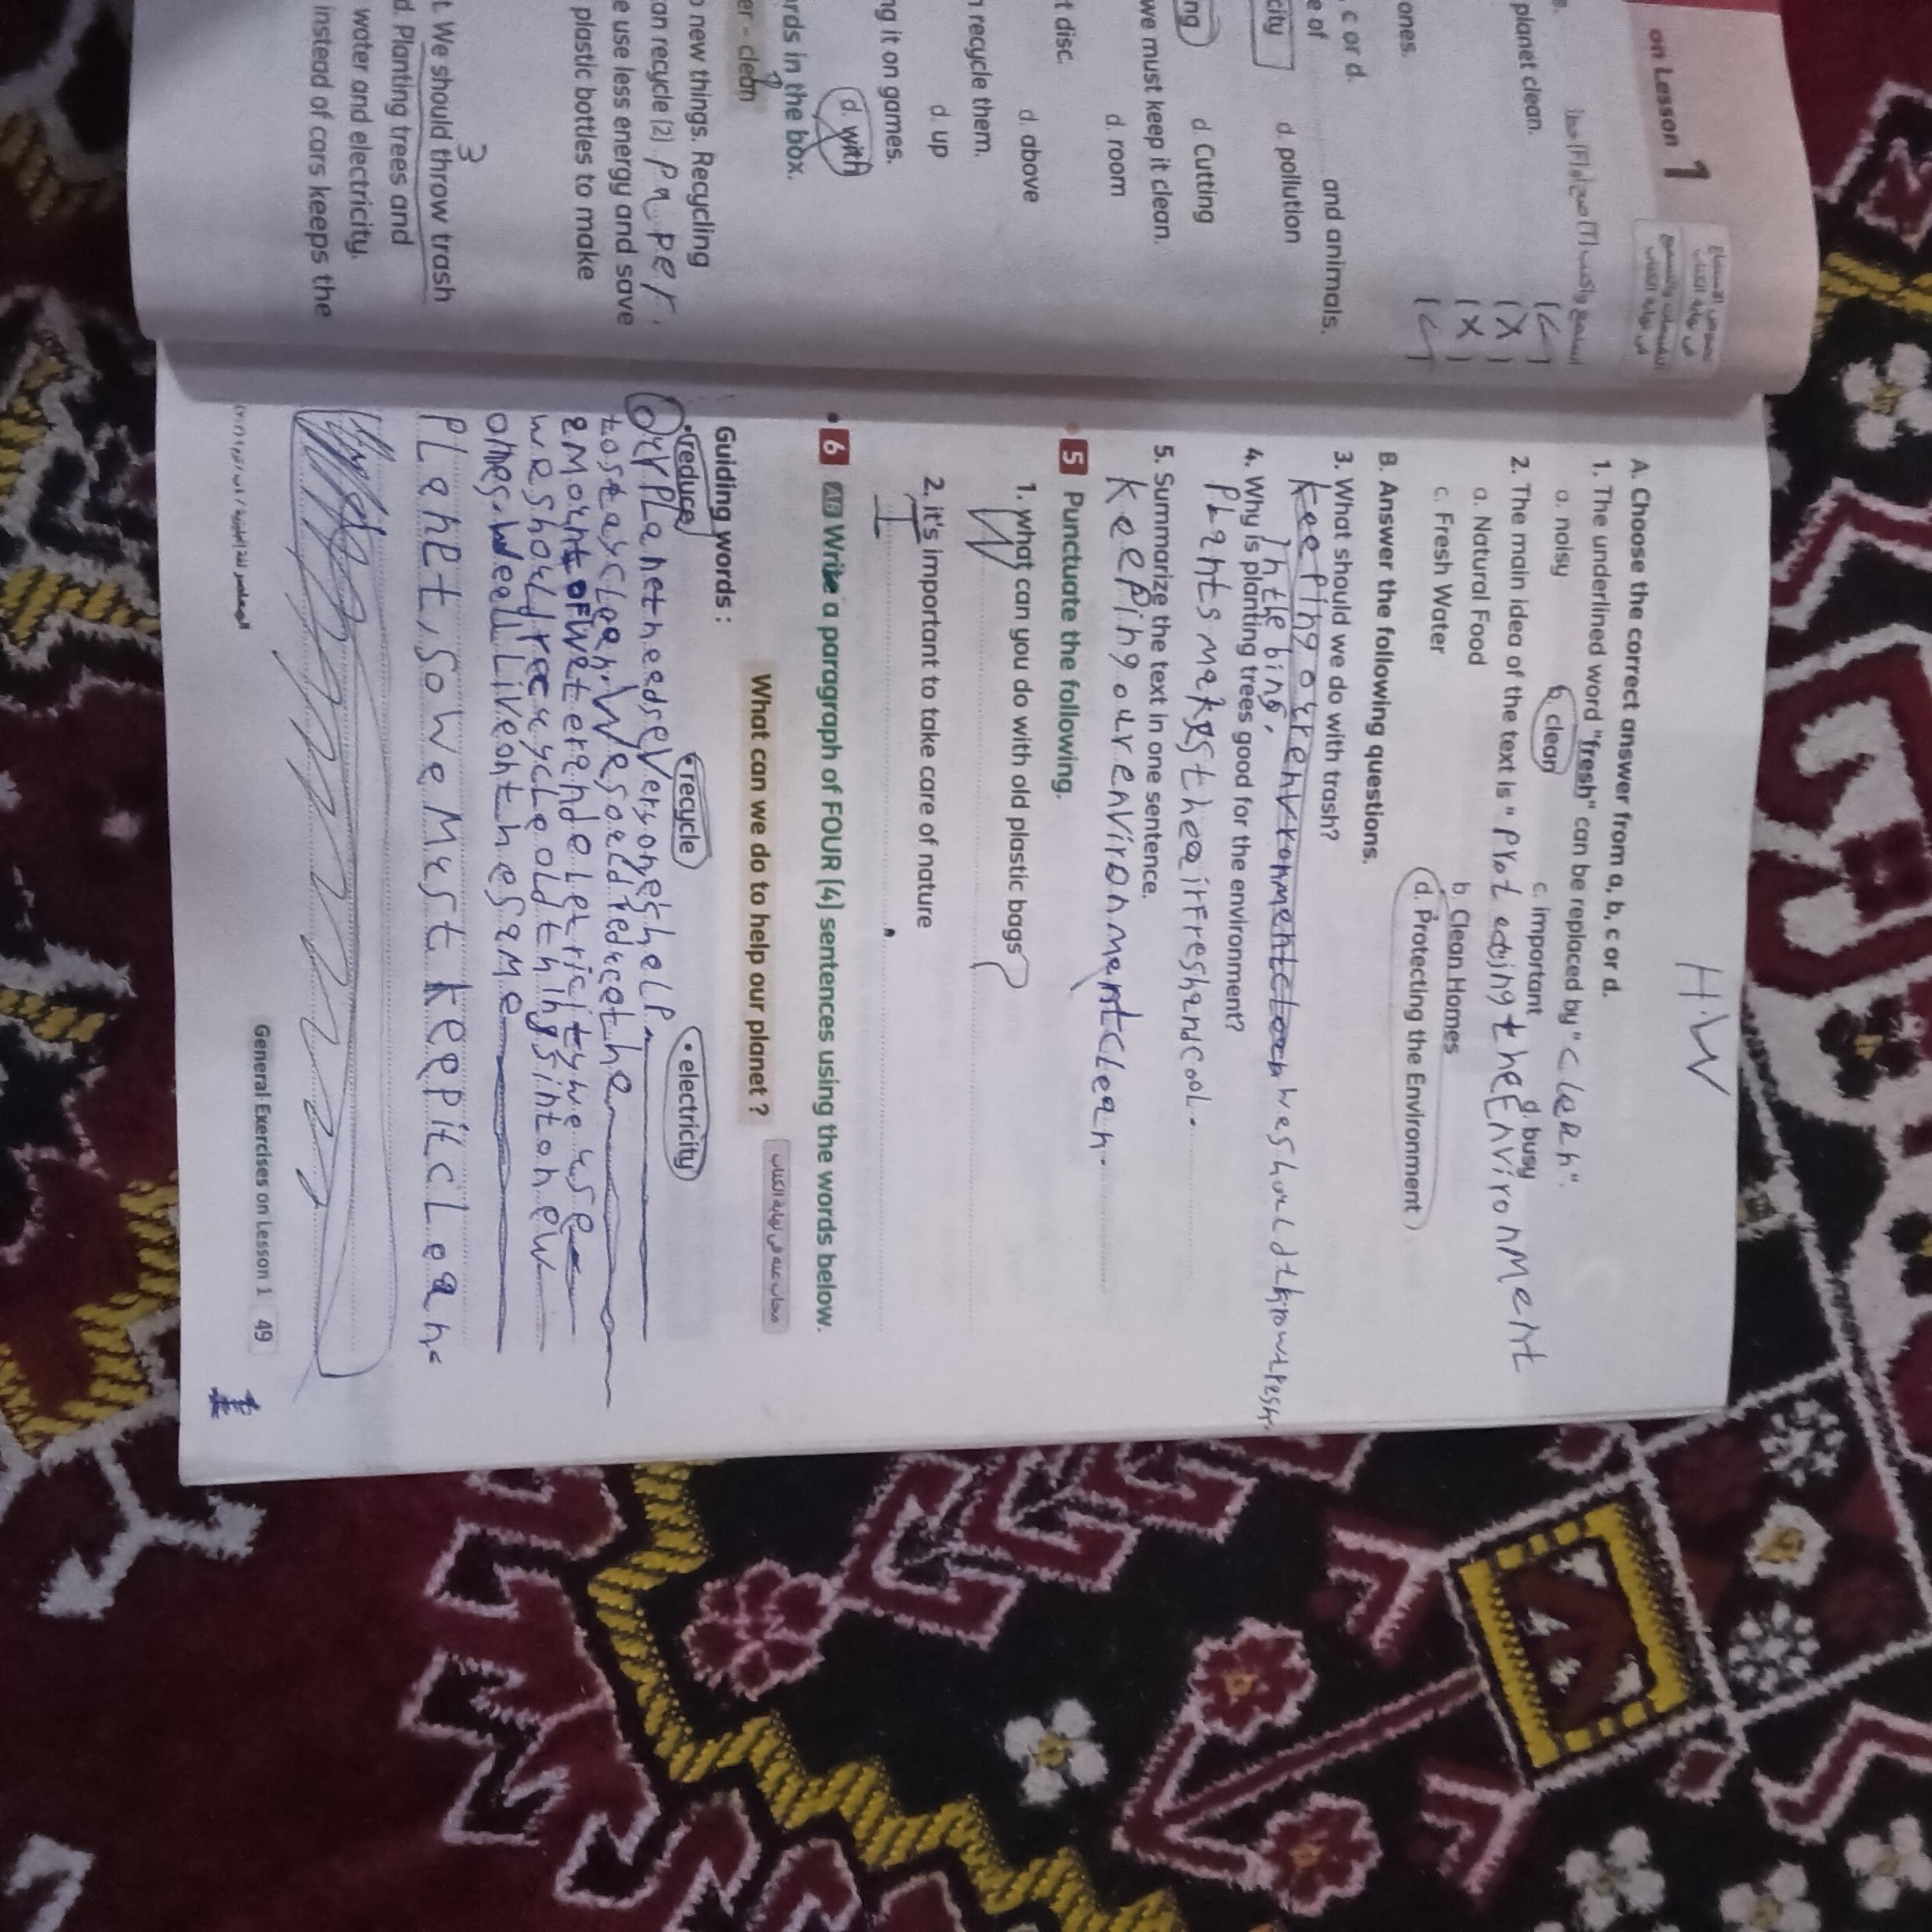 on Lesson 1
planet clean.
(✓)
(X)
(X)
(✓)
ones.
, c or d.
e of
and animals.
city
d. pollution
ng
d. Cutting
we must keep it clean.
d. room
t disc.
d. above
n recycle them.
d. up
ng it on games.
d. with
rds in the box.
er - clean
o new things. Recycling
an recycle (2) paper.
e use less energy and save
plastic bottles to make
3
t. We should throw trash
d. Planting trees and
water and electricity.
instead of cars keeps the
H.W
A. Choose the correct answer from a, b, c or d.
1. The underlined word "fresh" can be replaced by "clean".
a. noisy
b. clean
c. important
d. busy
2. The main idea of the text is "Protecting the Environment
a. Natural Food
b. Clean Homes
c. Fresh Water
d. Protecting the Environment
B. Answer the following questions.
3. What should we do with trash?
keeping our environment clean we should throw tresh
in the bing.
4. Why is planting trees good for the environment?
Plants makes the air fresh and cool.
5. Summarize the text in one sentence.
keeping our environment clean.
5 Punctuate the following.
1. what can you do with old plastic bags?
W
2. it's important to take care of nature
I .
6 Write a paragraph of FOUR (4) sentences using the words below.
What can we do to help our planet ?
مجاب عنه في نهاية الكتاب
Guiding words :
• reduce
• recycle
• electricity
Our Planet needs everyone's help.
to stay clean. We soeld reduce the
amount of water and eletricity we use
we shoul recycle old things into new
ones. We all live on the same
planet, so we must keep it clean.
General Exercises on Lesson 1 49